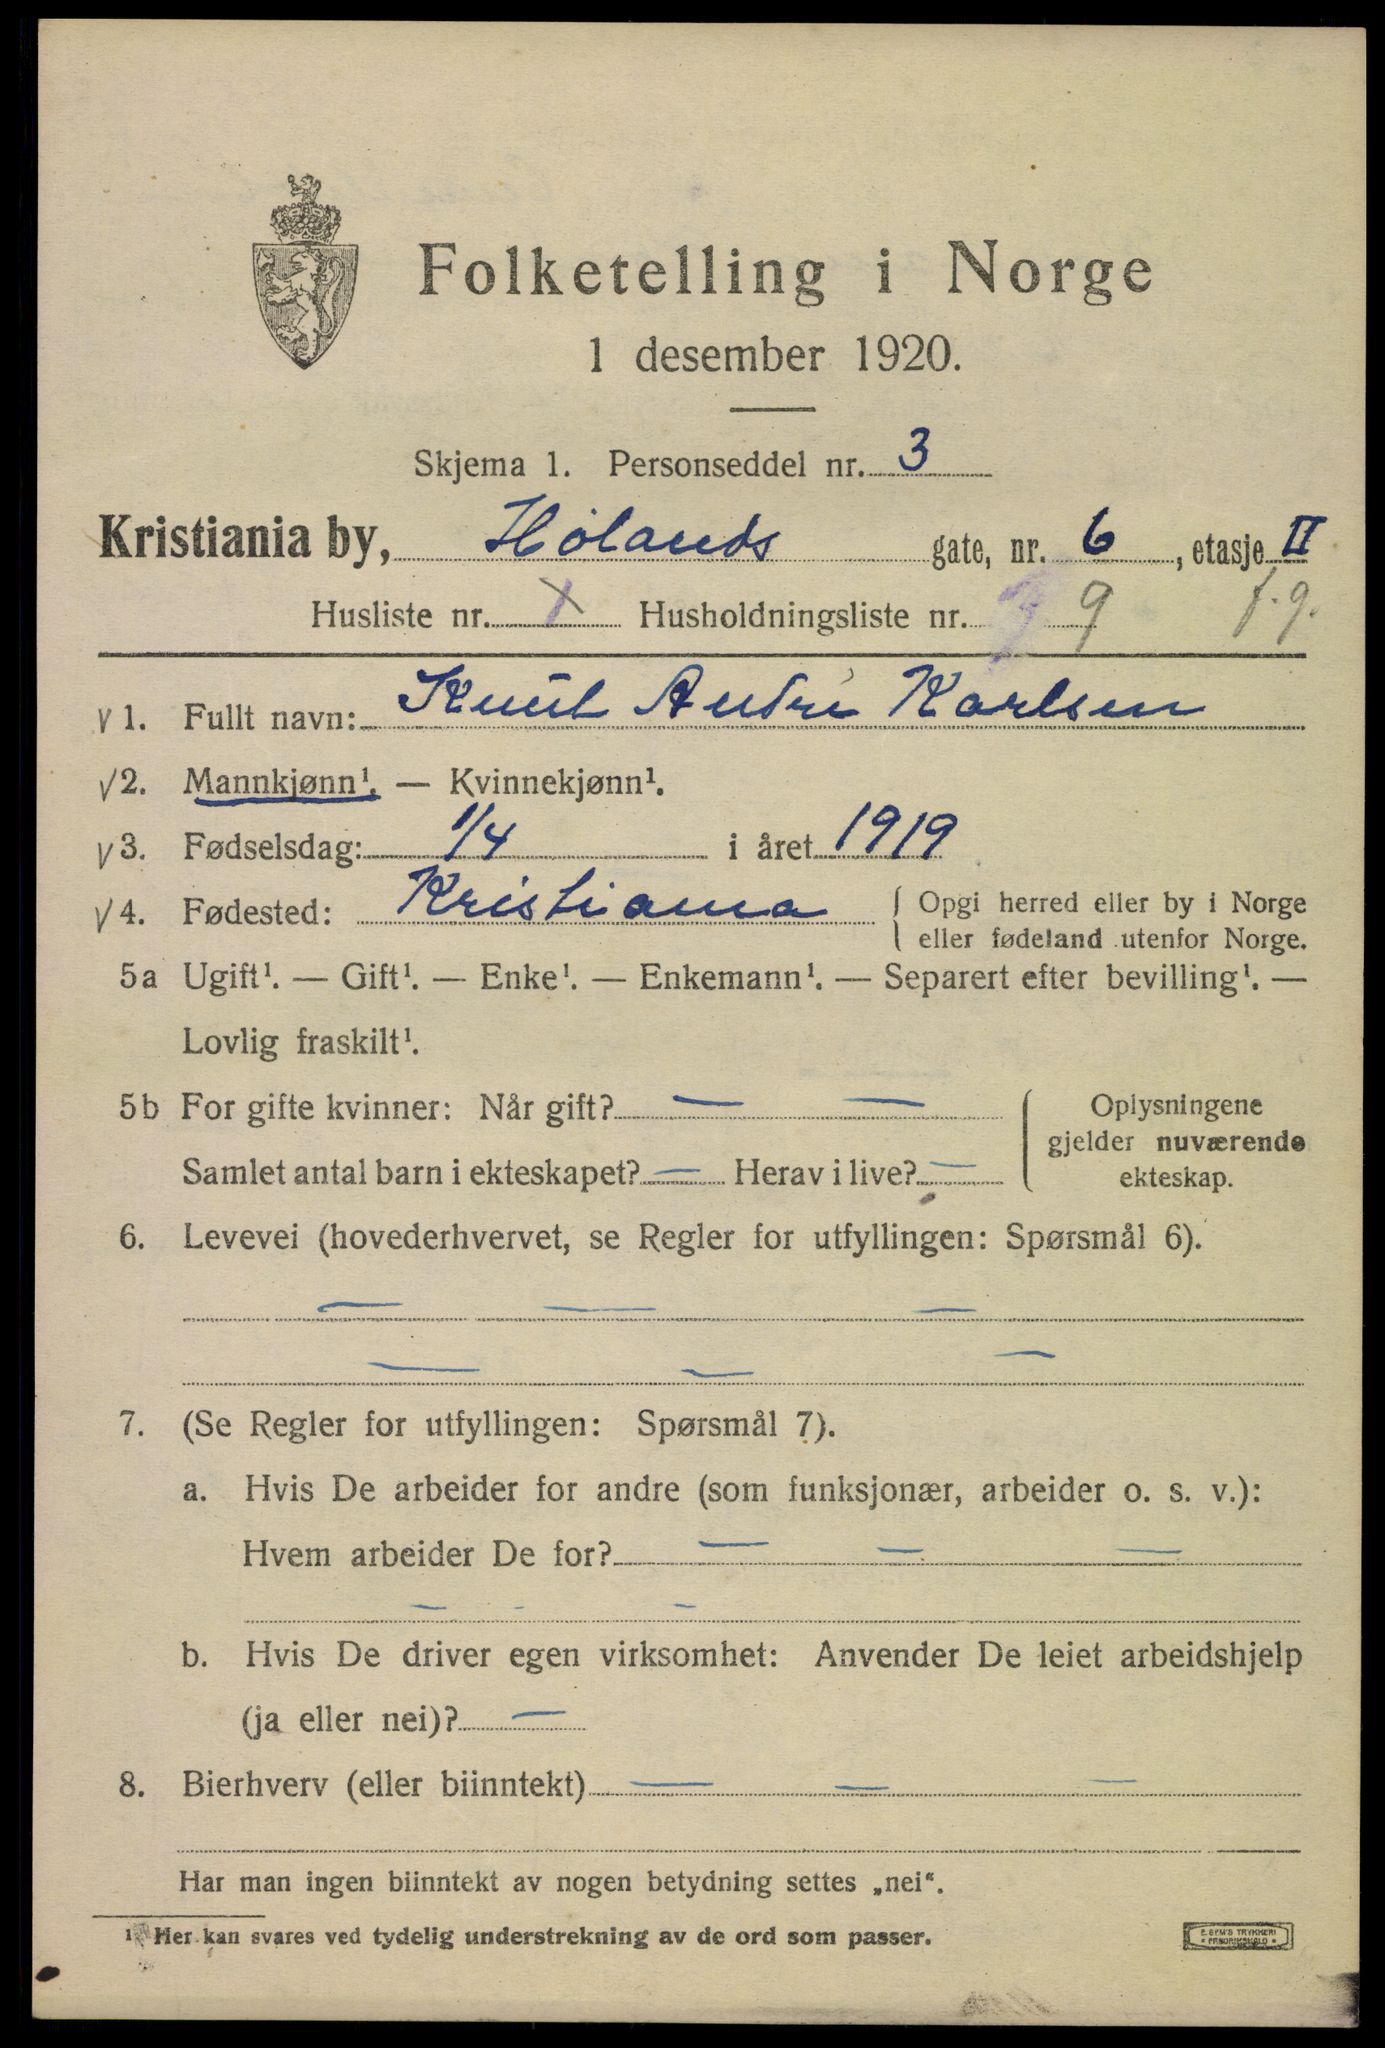 Folketelling i Norge
1 desember 1920.
Skjema 1. Personseddel nr. 3
Kristiania by, Hölands gate, nr. 6, etasje II
Husliste nr. Husholdningsliste nr. 9 f.g.
√ 1. Fullt navn: Knut Andri Karlsen
√ 2. Mannkjønn¹. — Kvinnekjønn¹.
√ 3. Fødselsdag: 1/4 i året 1919
√ 4. Fødested: Kristiania { Opgi herred eller by i Norge
eller fødeland utenfor Norge.
5a Ugift¹. — Gift¹. — Enke¹. — Enkemann¹. — Separert efter bevilling¹. —
Lovlig fraskilt¹.
5b For gifte kvinner: Når gift? — — { Oplysningene
gjelder nuværende
Samlet antal barn i ekteskapet? — Herav i live? —
ekteskap.
6. Levevei (hovederhvervet, se Regler for utfyllingen: Spørsmål 6).
— — —
— — —
7. (Se Regler for utfyllingen: Spørsmål 7).
a. Hvis De arbeider for andre (som funksjonær, arbeider o. s. v.):
Hvem arbeider De for? — — —
— - —
b. Hvis De driver egen virksomhet: Anvender De leiet arbeidshjelp
(ja eller nei)? —
8. Bierhverv (eller biinntekt) — — —
Har man ingen biinntekt av nogen betydning settes „nei“.
¹ Her kan svares ved tydelig understrekning av de ord som passer.
E. SEM'S TRYKKERI
* FREDRIKSHALD *